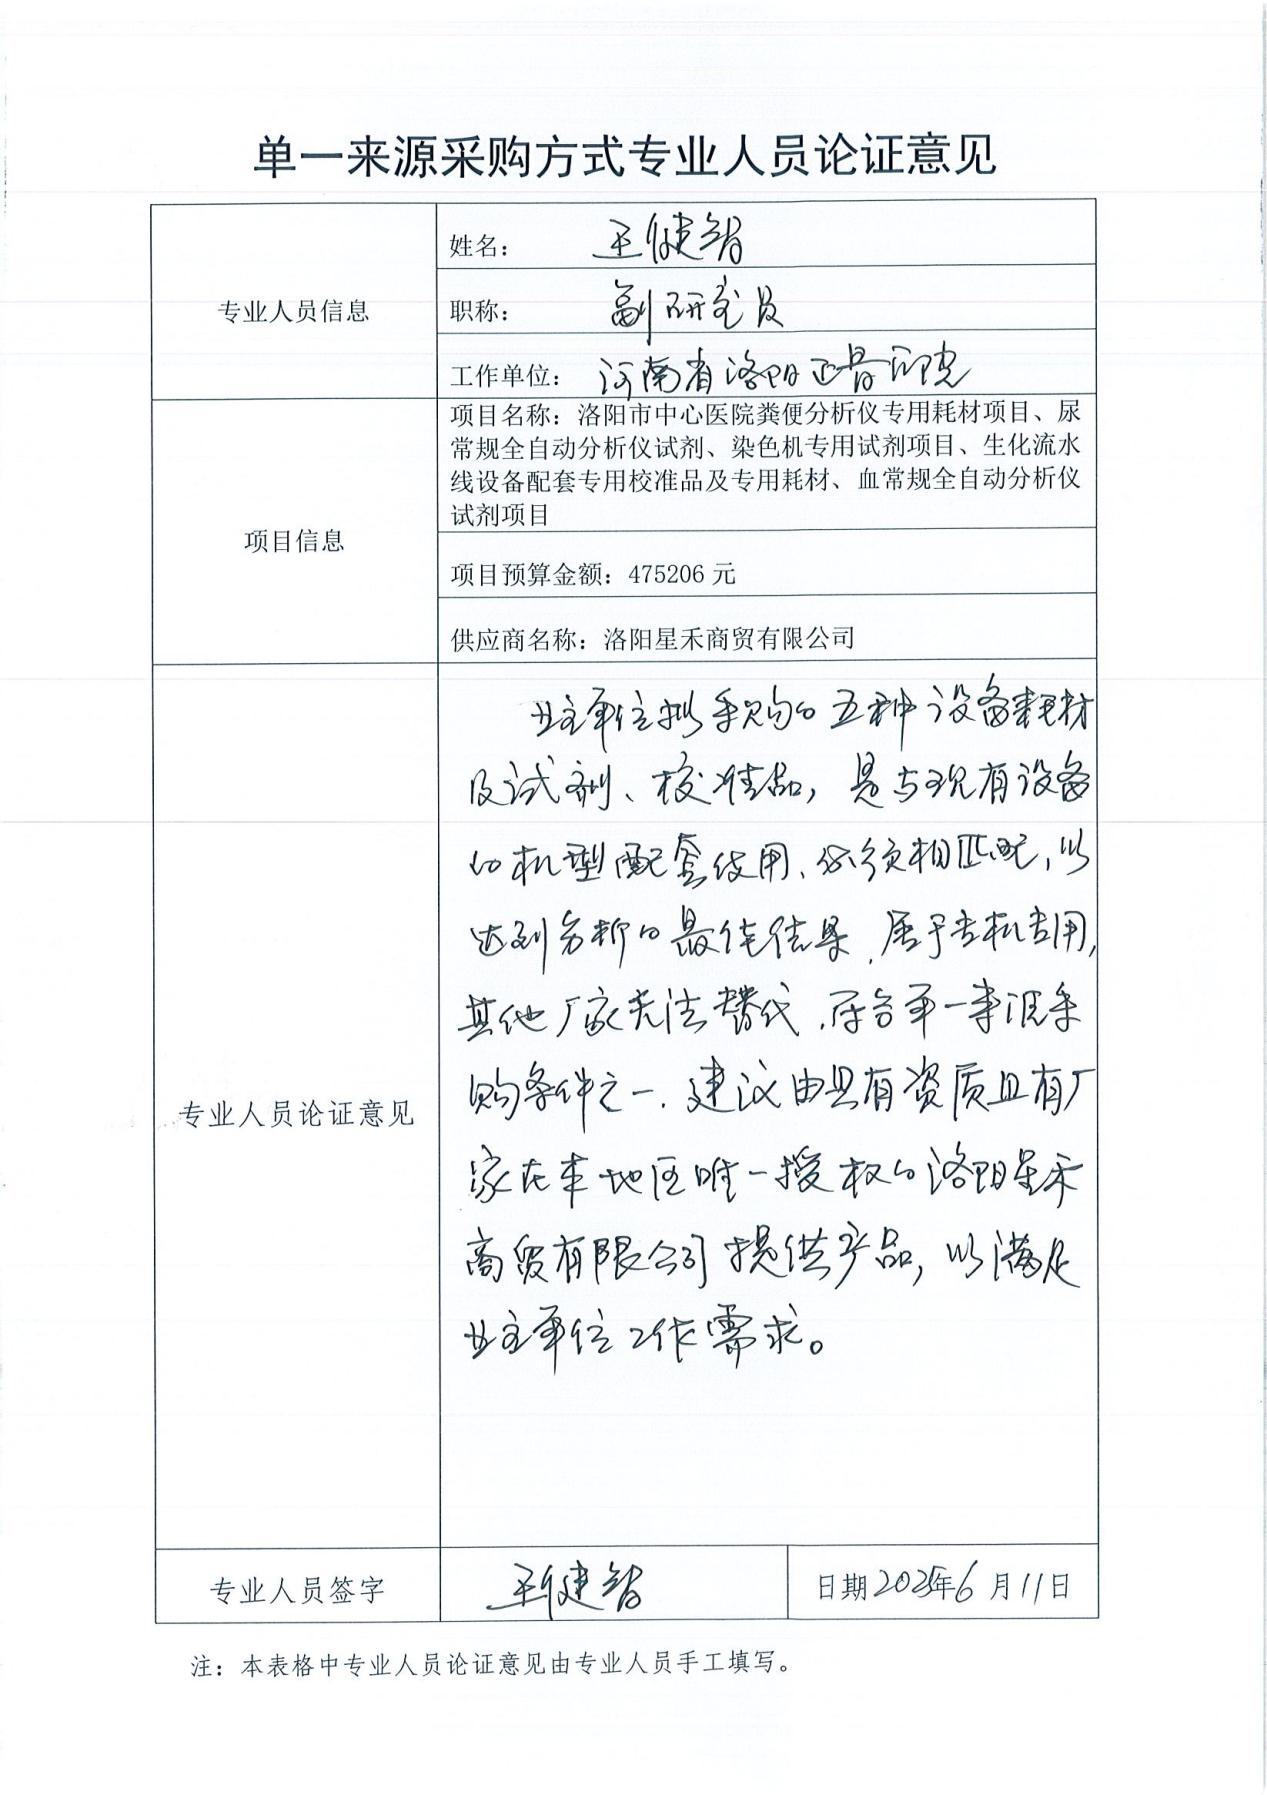 单一来源采购方式专业人员论证意见
专业人员信息
姓名： 王健智
职称： 副研究员
工作单位： 河南省洛阳正骨医院
项目信息
项目名称：洛阳市中心医院粪便分析仪专用耗材项目、尿
常规全自动分析仪试剂、染色机专用试剂项目、生化流水
线设备配套专用校准品及专用耗材、血常规全自动分析仪
试剂项目
项目预算金额：475206 元
供应商名称：洛阳星禾商贸有限公司
专业人员论证意见
业主单位拟采购的五种设备耗材
及试剂、校准品，是与现有设备
的机型配套使用、必须相匹配，以
达到分析的最佳结果，属于专机专用，
其他厂家无法替代，符合单一来源采
购条件之一，建议由具有资质且有厂
家在本地区唯一授权的洛阳星禾
商贸有限公司提供产品，以满足
业主单位工作需求。
专业人员签字
王健智
日期 2025年6月11日
注：本表格中专业人员论证意见由专业人员手工填写。